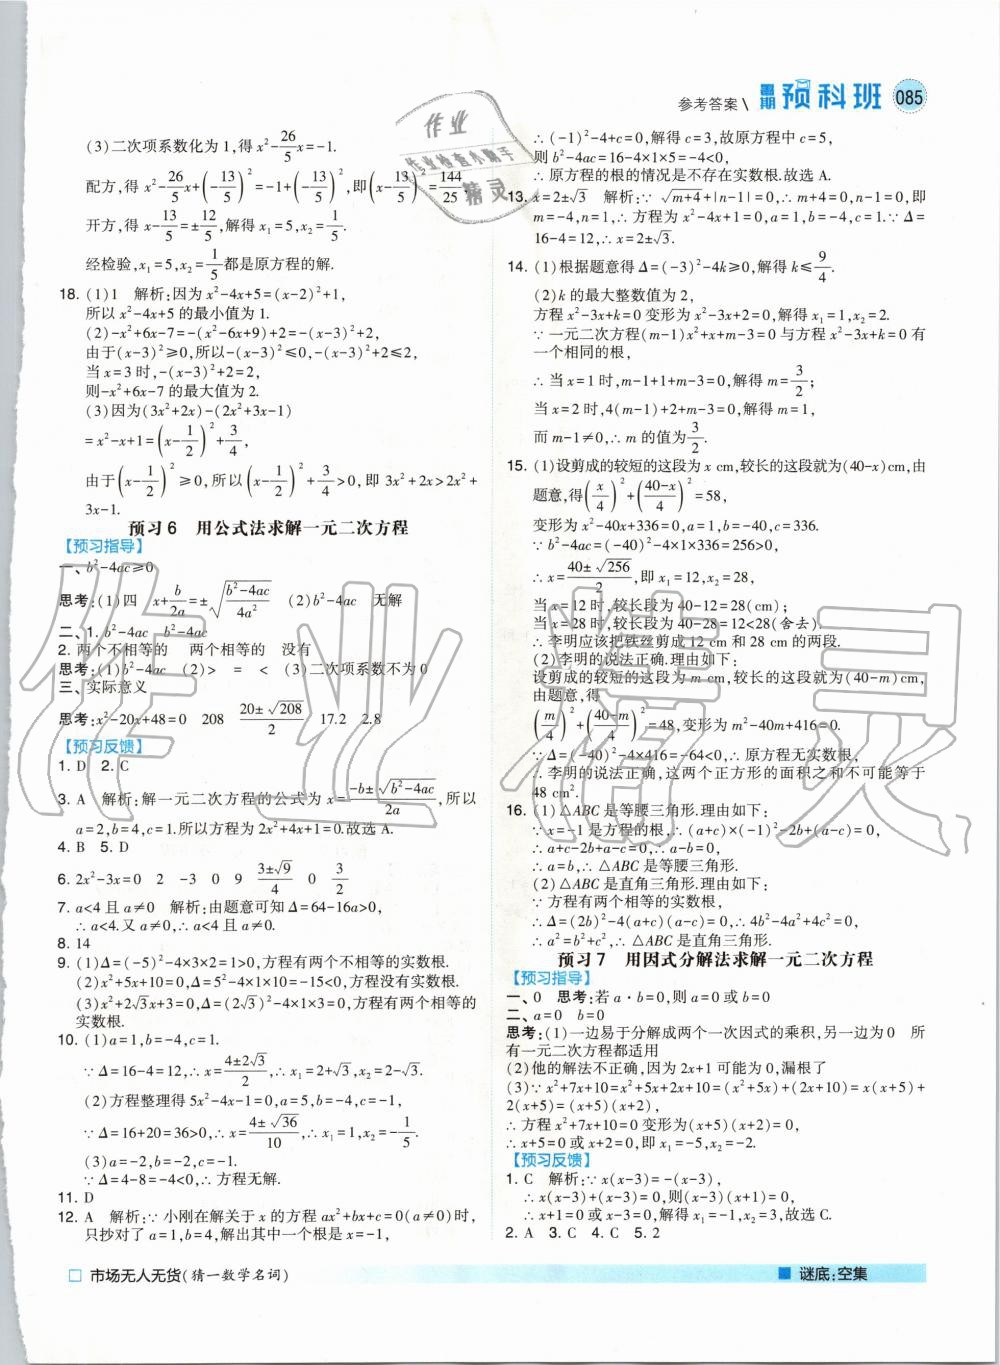 参考答案\ 暑期预科班 085
(3)二次项系数化为1,得x²-26/5x=-1.
配方,得x²-26/5x+(-13/5)²=-1+(-13/5)²,即(x-13/5)²=144/25,
开方,得x-13/5=±12/5,解得x₁=5,x₂=1/5.
经检验,x₁=5,x₂=1/5都是原方程的解.
18. (1)1 解析:因为x²-4x+5=(x-2)²+1,
所以x²-4x+5的最小值为1.
(2)-x²+6x-7=-(x²-6x+9)+2=-(x-3)²+2,
由于(x-3)²≥0,所以-(x-3)²≤0,-(x-3)²+2≤2,
当x=3时,-(x-3)²+2=2,
则-x²+6x-7的最大值为2.
(3)因为(3x²+2x)-(2x²+3x-1)
=x²-x+1=(x-1/2)²+3/4,
由于(x-1/2)²≥0,所以(x-1/2)²+3/4>0,即3x²+2x>2x²+
3x-1.
预习6 用公式法求解一元二次方程
【预习指导】
一、b²-4ac≥0
思考:(1)四 x+b/2a=±√(b²-4ac/4a²) (2)b²-4ac 无解
二、1. b²-4ac b²-4ac
2. 两个不相等的 两个相等的 没有
思考:(1)b²-4ac (2)> = < (3)二次项系数不为0
三、实际意义
思考:x²-20x+48=0 208 20±√208/2 17.2 2.8
【预习反馈】
1. D 2. C
3. A 解析:解一元二次方程的公式为x=-b±√(b²-4ac)/2a,所以
a=2,b=4,c=1.所以方程为2x²+4x+1=0.故选A.
4. B 5. D
6. 2x²-3x=0 2 -3 0 9 3±√9/4 0 3/2
7. a<4且a≠0 解析:由题意可知Δ=64-16a>0,
∴a<4.又a≠0,∴a<4且a≠0.
8. 14
9. (1)Δ=(-5)²-4×3×2=1>0,方程有两个不相等的实数根.
(2)x²+5x+10=0,Δ=5²-4×1×10=-15<0,方程没有实数根.
(3)x²+2√3x+3=0,Δ=(2√3)²-4×1×3=0,方程有两个相等的
实数根.
10. (1)a=1,b=-4,c=1.
∵Δ=16-4=12,∴x=4±2√3/2,∴x₁=2+√3,x₂=2-√3.
(2)方程整理得5x²-4x-1=0,a=5,b=-4,c=-1,
∵Δ=16+20=36>0,∴x=4±√36/10,∴x₁=1,x₂=-1/5.
(3)a=-2,b=-2,c=-1.
∵Δ=4-8=-4<0,∴方程无解.
11. D
12. A 解析:∵小刚在解关于x的方程ax²+bx+c=0(a≠0)时,
只抄对了a=1,b=4,解出其中一个根是x=-1,
∴(-1)²-4+c=0,解得c=3,故原方程中c=5,
则b²-4ac=16-4×1×5=-4<0,
∴原方程的根的情况是不存在实数根.故选A.
13. x=2±√3 解析:∵√(m+4)+|n-1|=0,∴m+4=0,n-1=0,即
m=-4,n=1,∴方程为x²-4x+1=0,a=1,b=-4,c=1.∵Δ=
16-4=12,∴x=2±√3.
14. (1)根据题意得Δ=(-3)²-4k≥0,解得k≤9/4.
(2)k的最大整数值为2,
方程x²-3x+k=0变形为x²-3x+2=0,解得x₁=1,x₂=2.
∵一元二次方程(m-1)x²+x+m-3=0与方程x²-3x+k=0有
一个相同的根,
∴当x=1时,m-1+1+m-3=0,解得m=3/2;
当x=2时,4(m-1)+2+m-3=0,解得m=1,
而m-1≠0,∴m的值为3/2.
15. (1)设剪成的较短的这段为x cm,较长的这段就为(40-x)cm,由
题意,得(x/4)²+(40-x/4)²=58,
变形为x²-40x+336=0.a=1,b=-40,c=336.
∵b²-4ac=(-40)²-4×1×336=256>0,
∴x=40±√256/2,即x₁=12,x₂=28,
当x=12时,较长段为40-12=28(cm);
当x=28时,较长段为40-28=12<28(舍去).
∴李明应该把铁丝剪成12 cm和28 cm的两段.
(2)李明的说法正确.理由如下:
设剪成的较短的这段为m cm,较长的这段就为(40-m)cm,
由题意,得
(m/4)²+(40-m/4)²=48,变形为m²-40m+416=0.
∵Δ=(-40)²-4×416=-64<0,∴原方程无实数根,
∴李明的说法正确,这两个正方形的面积之和不可能等于
48 cm².
16. (1)△ABC是等腰三角形.理由如下:
∵x=-1是方程的根,∴(a+c)×(-1)²-2b+(a-c)=0,
∴a+c-2b+a-c=0,
∴a=b,∴△ABC是等腰三角形.
(2)△ABC是直角三角形.理由如下:
∵方程有两个相等的实数根,
∴Δ=(2b)²-4(a+c)(a-c)=0,∴4b²-4a²+4c²=0,
∴a²=b²+c²,∴△ABC是直角三角形.
预习7 用因式分解法求解一元二次方程
【预习指导】
一、0 思考:若a·b=0,则a=0或b=0
二、a=0 b=0
思考:(1)一边易于分解成两个一次因式的乘积,另一边为0 所
有一元二次方程都适用
(2)他的解法不正确.因为2x+1可能为0,漏根了
(3)∵x²+7x+10=x²+5x+2x+10=(x²+5x)+(2x+10)=x(x+5)+
2(x+5)=(x+5)(x+2),
∴方程x²+7x+10=0变形为(x+5)(x+2)=0,
∴x+5=0或x+2=0,即x₁=-5,x₂=-2.
【预习反馈】
1. C 解析:∵x(x-3)=-(x-3),
∴x(x-3)+(x-3)=0,则(x-3)(x+1)=0,
∴x+1=0或x-3=0,解得x₁=-1,x₂=3,故选C.
2. A 3. C 4. C 5. 2
市场无人无货(猜一数学名词)
谜底:空集
作业
作业检查小帮手
精灵
作业精灵